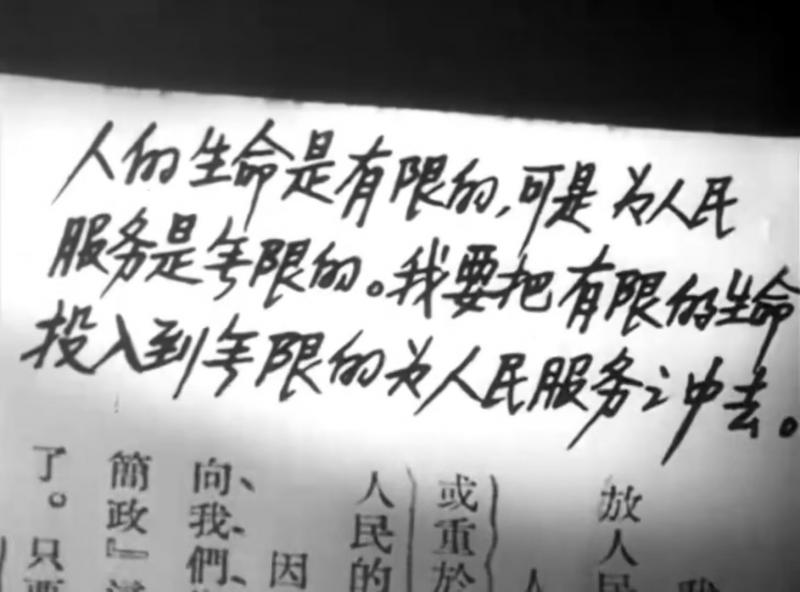 人的生命是有限的,可是为人民
服务是無限的。我要把有限的生命
投入到無限的为人民服务之中去。
放人民
或重於
人民的
因
向、我、們、
簡政』
了。只要